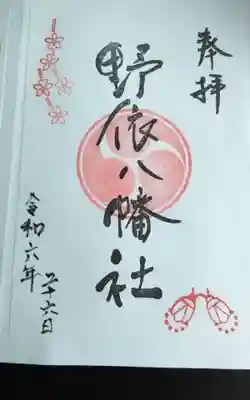 奉拝
野依八幡社
令和六年
十六日